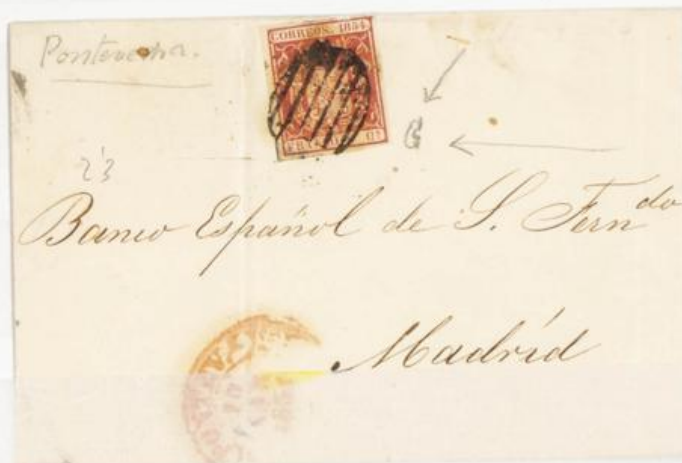 Pontevedra.
CORREOS. 1854
2'3
Banco Español de S. Fern^do
Madrid